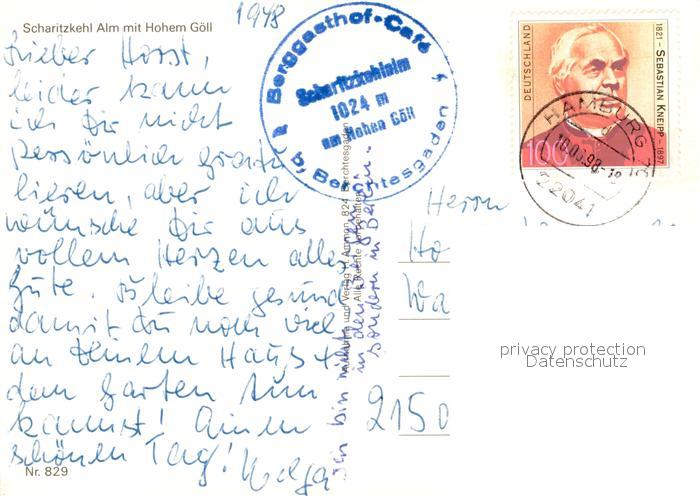 Scharitzkehl Alm mit Hohem Göll
1948
Lieber Horst,
leider kann
ich Dir nicht
persönlich gratu
lieren, aber ich
wünsche Dir aus
vollem Herzen alles
Gute. Bleibe gesund
damit du noch viel
an Deinem Haus +
dem Garten tun
kannst! Einen
schönen Tag! Helga
Nr. 829
Ich bin nicht
in den Bergen
sondern in Berlin.
Berggasthof-Café
Scharitzkehlalm
1024 m
am Hohen Göll
b. Berchtesgaden
824 Berchtesgaden
Alle Rechte vorbehalten
DEUTSCHLAND
100
1821 - SEBASTIAN KNEIPP - 1897
HAMBURG
22041
Herrn
Ho
Wa
2150
privacy protection
Datenschutz